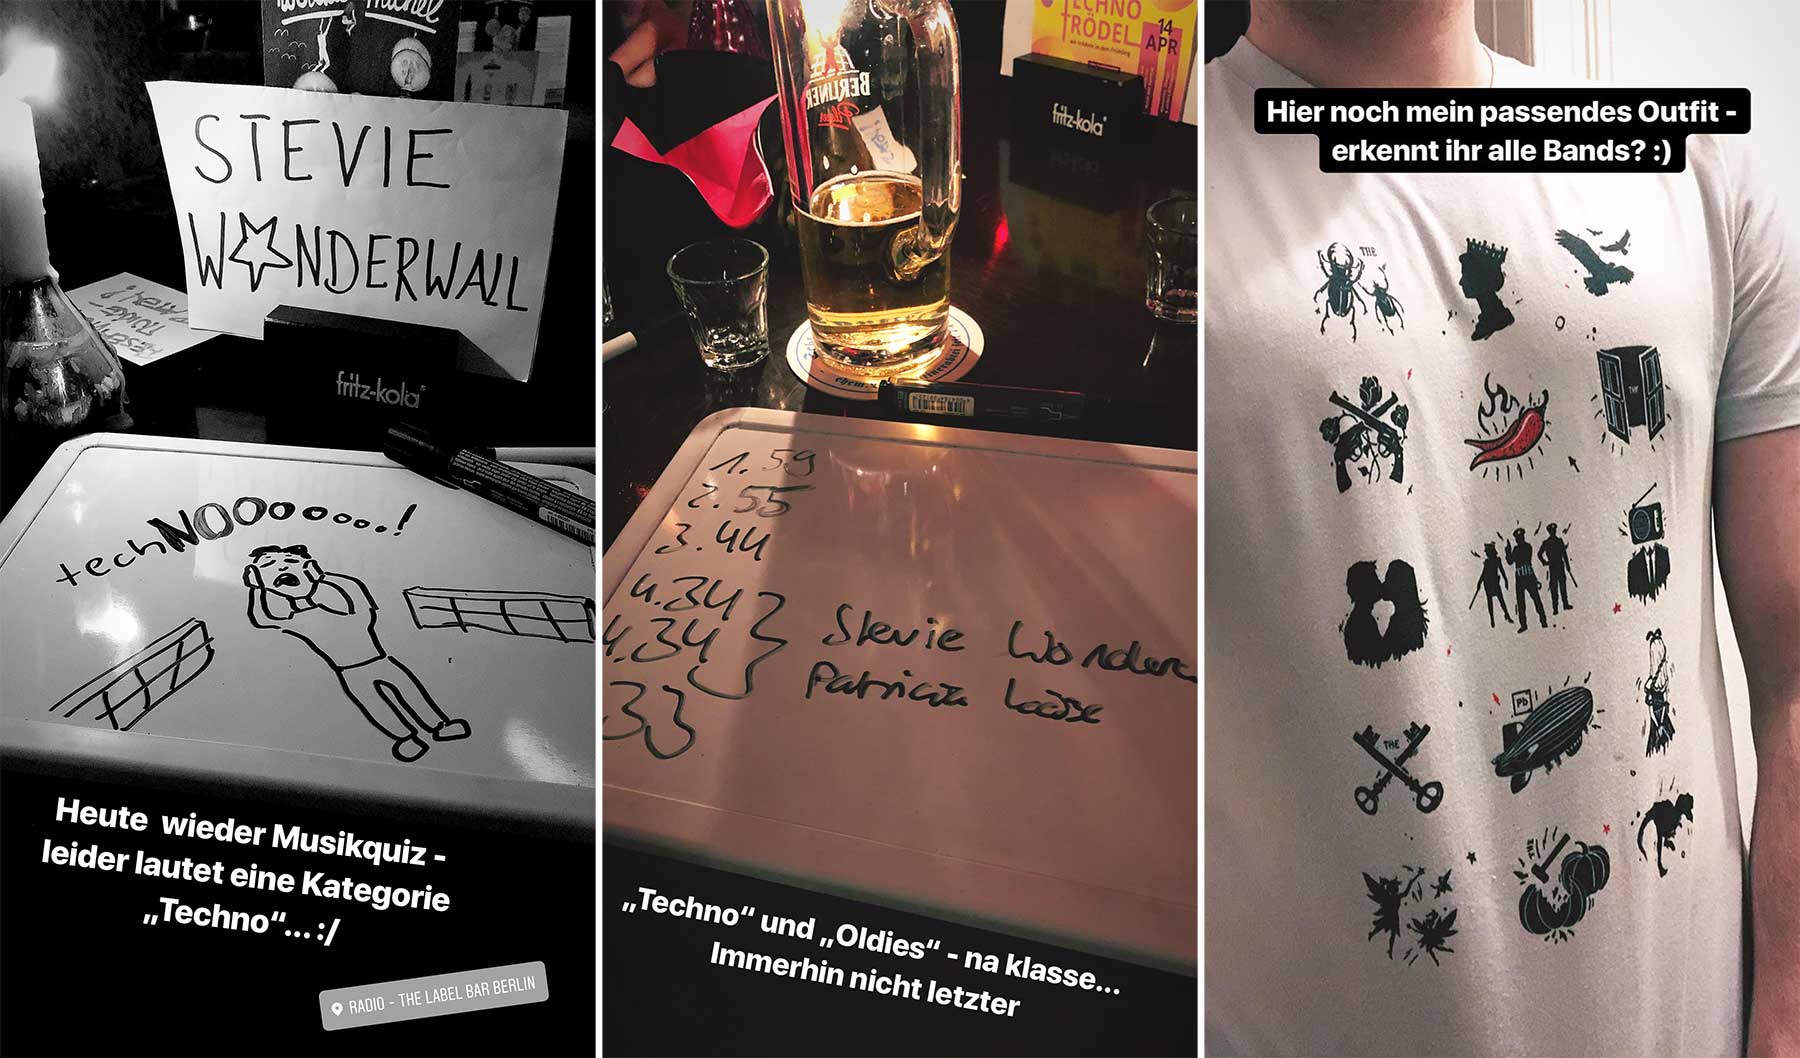 STEVIE
W☆NDERWALL
fritz-kola
techNOOooooo...!
Heute wieder Musikquiz -
leider lautet eine Kategorie
„Techno“... :/
RADIO - THE LABEL BAR BERLIN
TECHNO
TRÖDEL
14
APR
BERLINER
Pilsner
fritz-kola
1. 59
2. 55
3. 44
4. 34
4. 34
33
Stevie Wonderw
Patricia
„Techno“ und „Oldies“ - na klasse...
Immerhin nicht letzter
Hier noch mein passendes Outfit -
erkennt ihr alle Bands? :)
THE
THE
THE
THE
Pb
THE